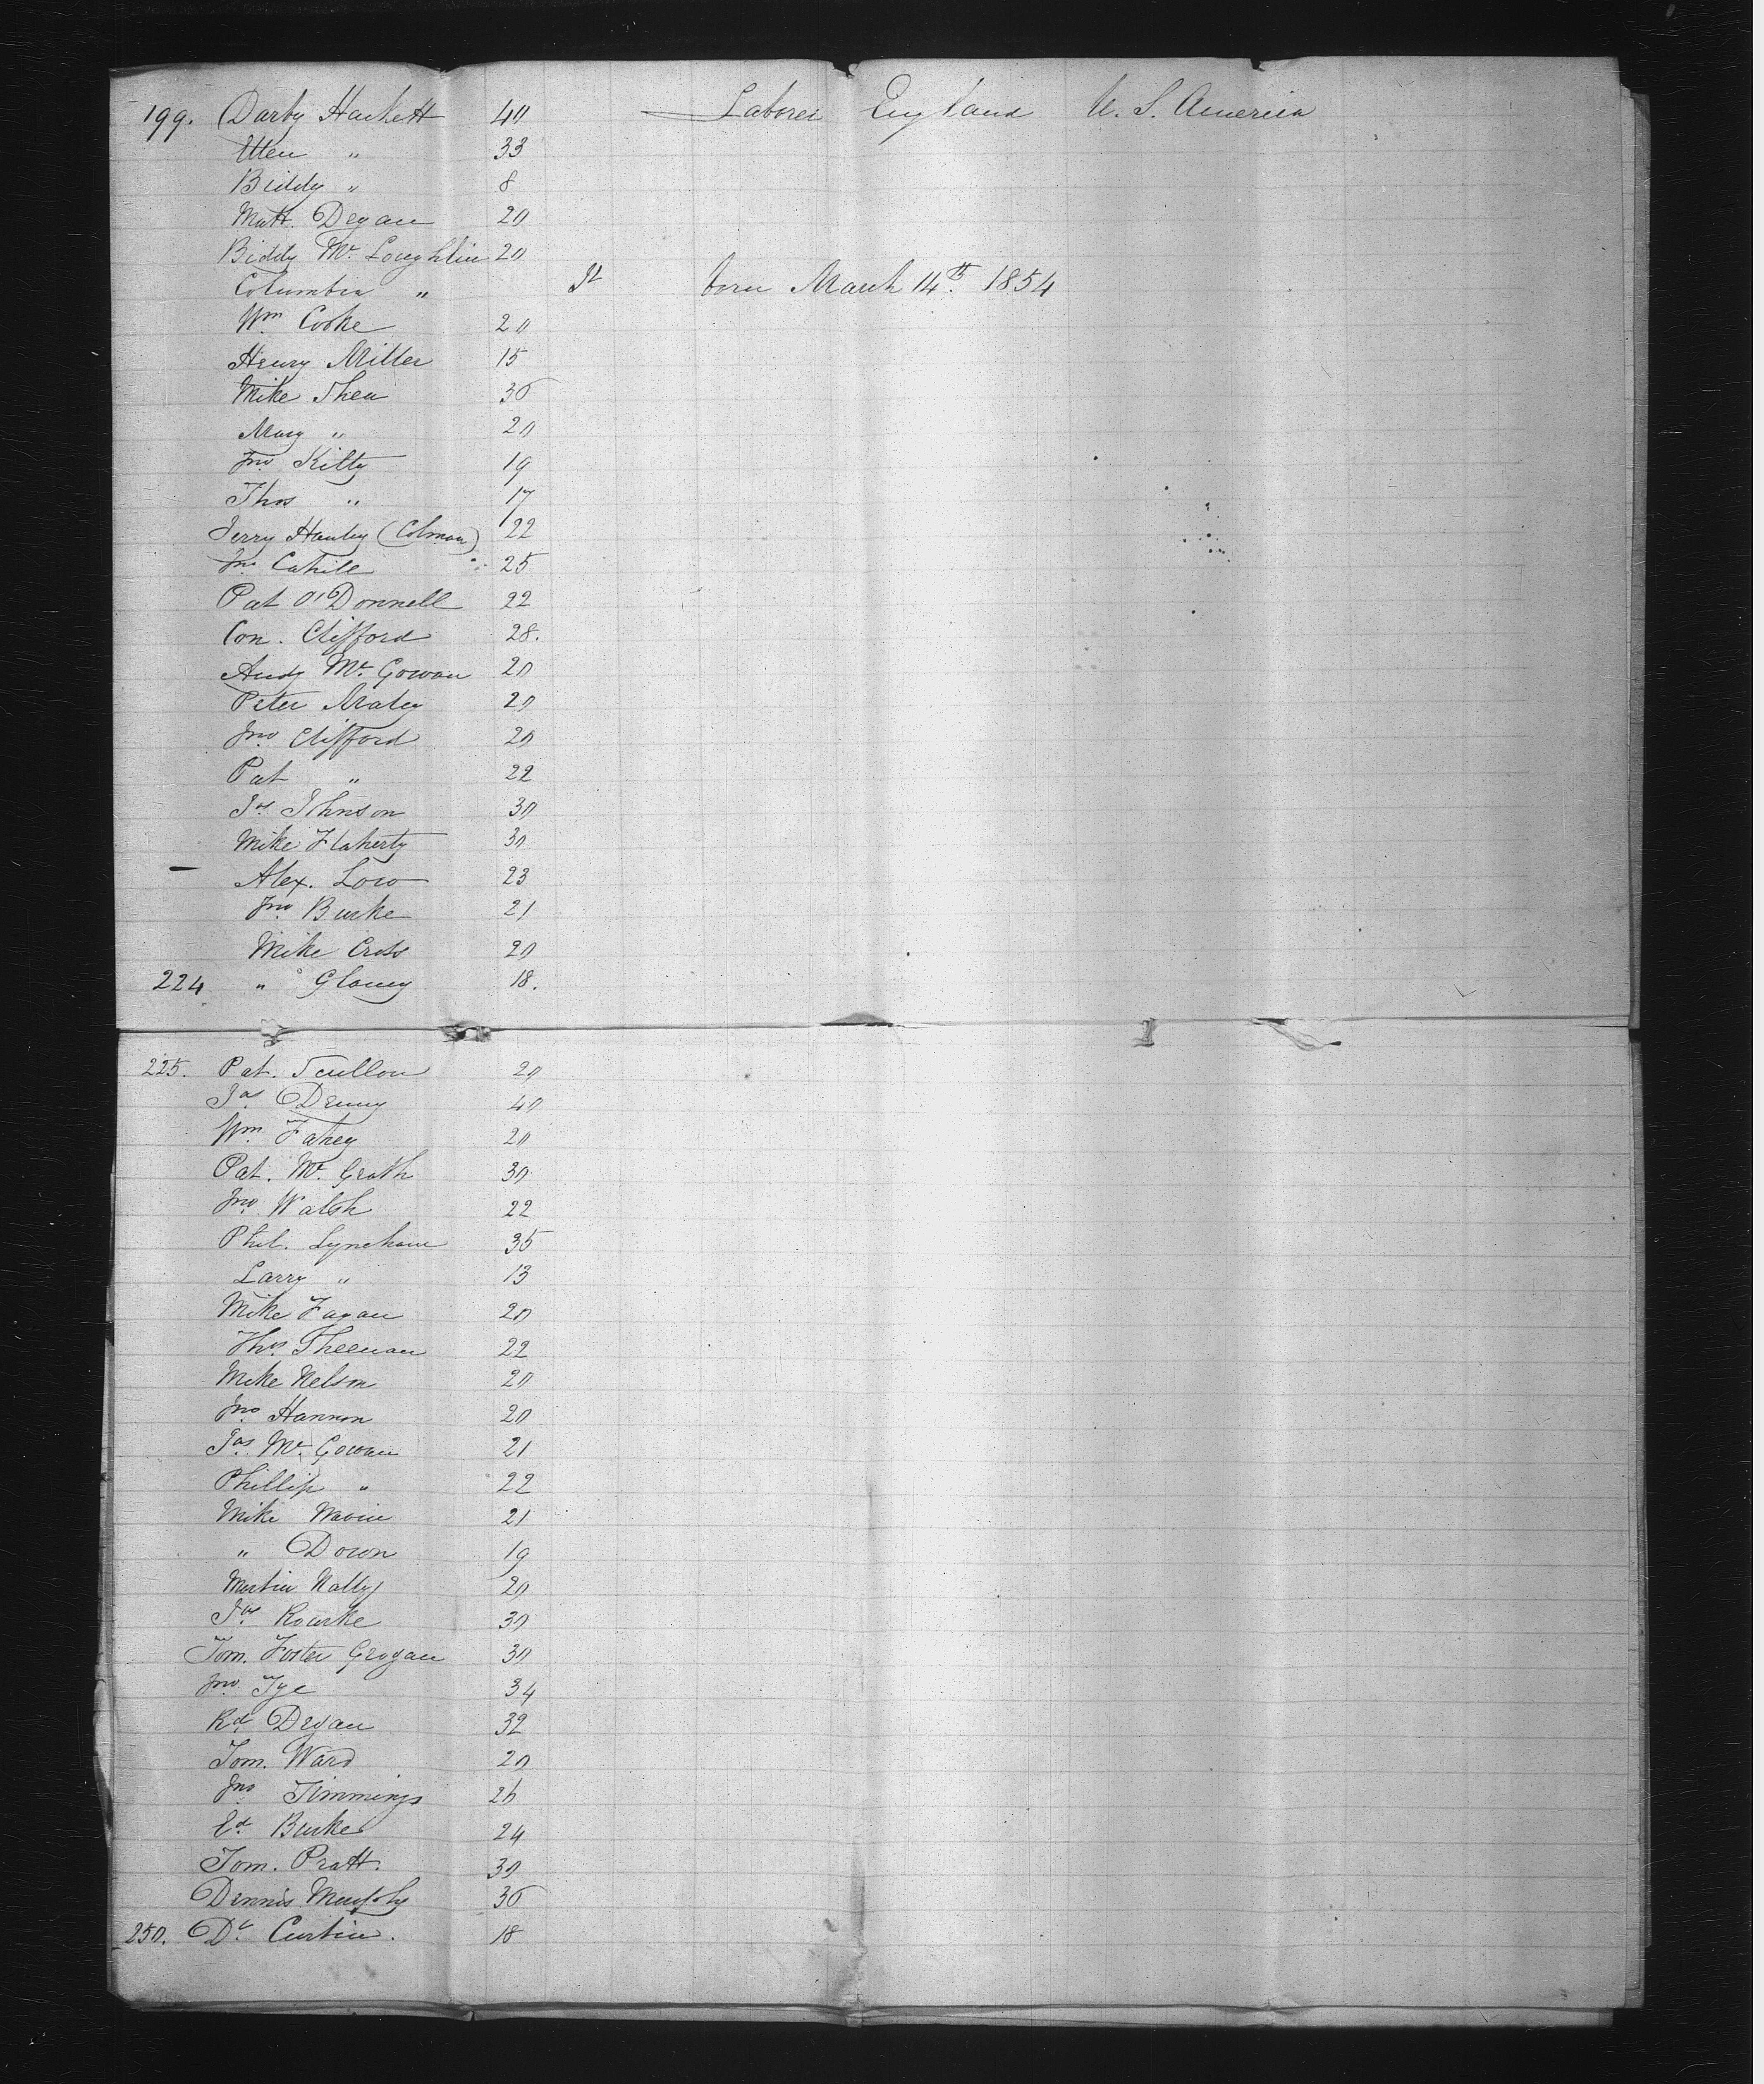 199. Darby Hackett 40 Laborer England U. S. America
Ellen " 33
Biddy " 8
Matt. Degan 20
Biddy Mc. Loughlin 20
Columbia " born March 14th. 1854
Wm. Cooke 20
Henry Miller 15
Mike Shea 36
Mary " 20
Jno. Kilty 19
Thos " 17
Jerry Hanley (Colman) 22
Jno. Cahill 25
Pat O'Donnell 22
Con. Clifford 28.
Andy Mc. Gowan 20
Peter 20
Jno. Clifford 20
Pat " 22
Jas. Johnson 30
Mike Flaherty 30
Alex. Low 23
Jno. Burke 21
Mike Cross 20
224. " Glancy 18.
225. Pat. Scullon 20
Jas. Denny 40
Wm. Fahey 20
Pat. Mc. Grath 30
Jno. Walsh 22
Phil. Lyneham 35
Larry " 13
Mike Fagan 20
Thos. Sheenan 22
Mike Nelson 20
Jno. Hannon 20
Jas. Mc. Gowan 21
Phillip " 22
Mike 21
" Down 19
Martin Nally 20
Jas. Rourke 30
Tom. Foster Grogan 30
Jno. Tye 34
Rd. Degan 32
Tom. Ward 20
Jno. Timmings 26
Ed. Burke 24
Tom. Pratt. 30
Dennis Murphy 36
250. Curtin. 18